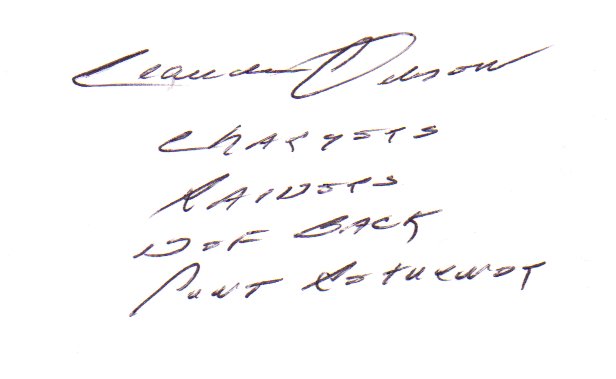 Claude Gibson
CHARGERS
RAIDERS
DEF BACK
PUNT RETURNER